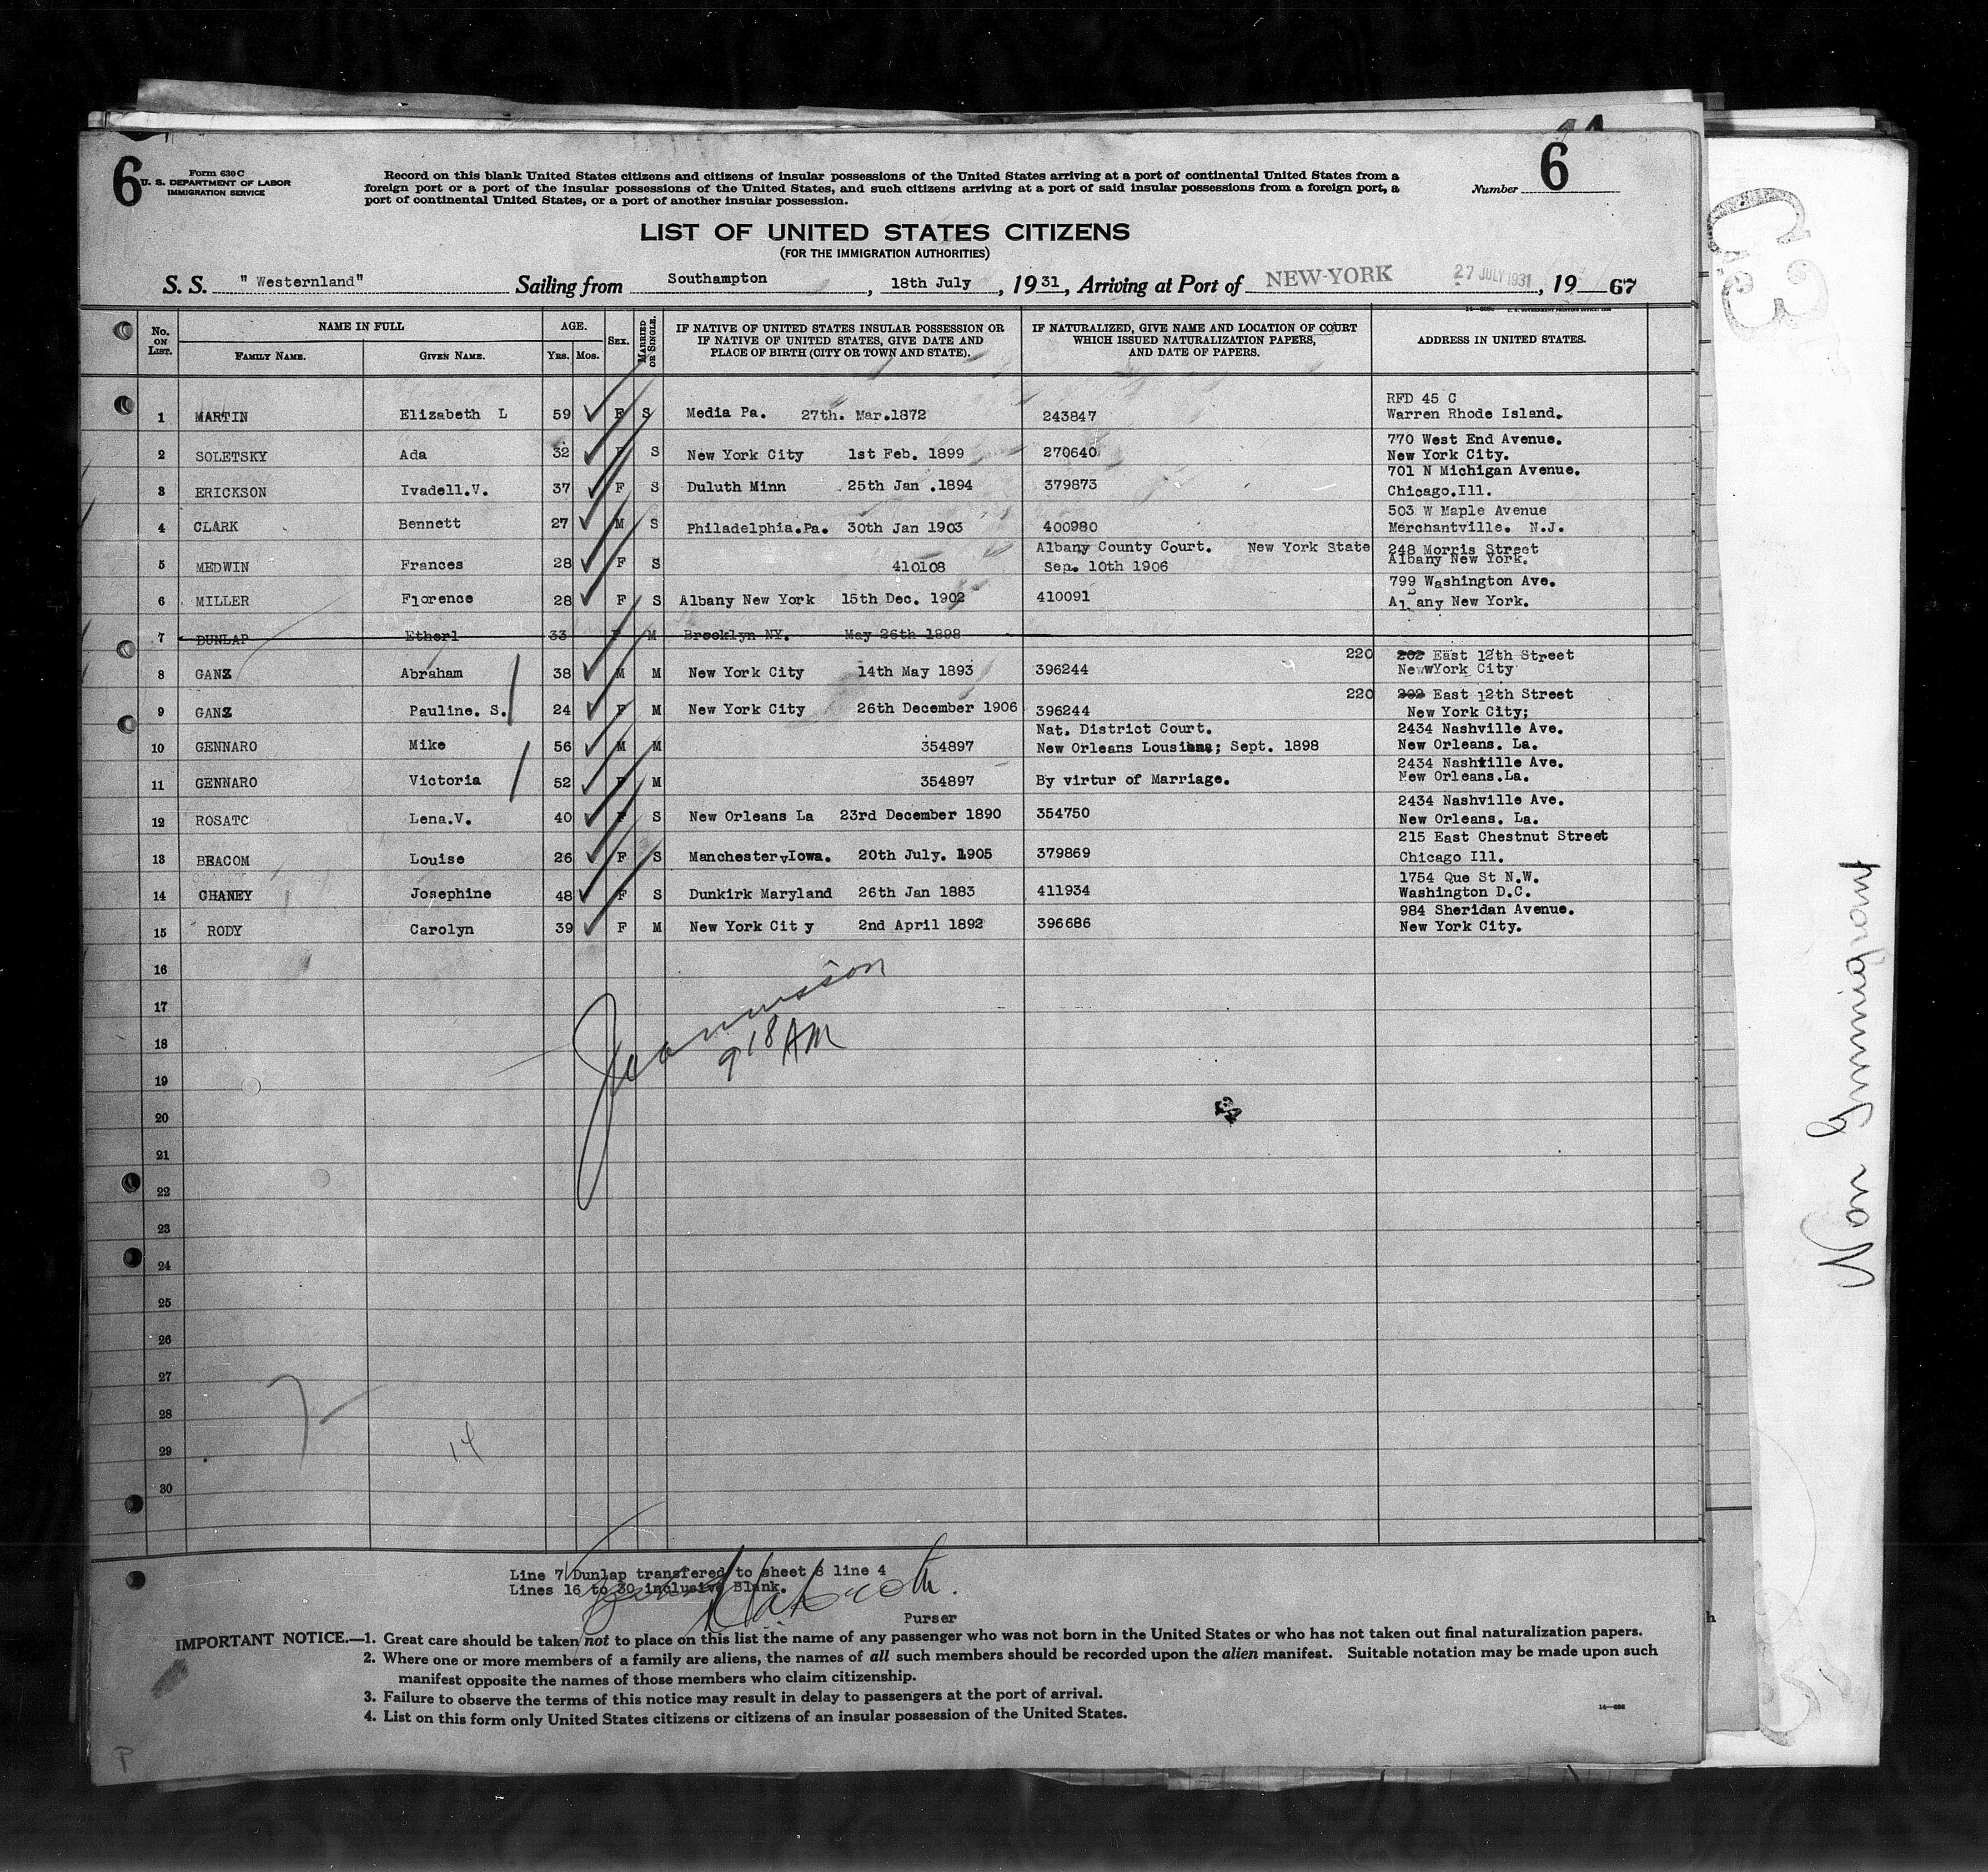 6
Form 630 C
U. S. DEPARTMENT OF LABOR
IMMIGRATION SERVICE
Record on this blank United States citizens and citizens of insular possessions of the United States arriving at a port of continental United States from a
foreign port or a port of the insular possessions of the United States, and such citizens arriving at a port of said insular possessions from a foreign port, a
port of continental United States, or a port of another insular possession.
Number 6
LIST OF UNITED STATES CITIZENS
(FOR THE IMMIGRATION AUTHORITIES)
S. S. "Westernland" Sailing from Southampton, 18th July, 1931, Arriving at Port of NEW-YORK 27 JULY 1931, 19 67
No. ON LIST. NAME IN FULL FAMILY NAME. GIVEN NAME. AGE. YRS. MOS. SEX. MARRIED OR SINGLE. IF NATIVE OF UNITED STATES INSULAR POSSESSION OR IF NATIVE OF UNITED STATES, GIVE DATE AND PLACE OF BIRTH (CITY OR TOWN AND STATE). IF NATURALIZED, GIVE NAME AND LOCATION OF COURT WHICH ISSUED NATURALIZATION PAPERS, AND DATE OF PAPERS. ADDRESS IN UNITED STATES.
1 MARTIN Elizabeth L 59 F S Media Pa. 27th. Mar.1872 243847 RFD 45 C Warren Rhode Island.
2 SOLETSKY Ada 32 F S New York City 1st Feb. 1899 270640 770 West End Avenue. New York City.
3 ERICKSON Ivadell.V. 37 F S Duluth Minn 25th Jan .1894 379873 701 N Michigan Avenue. Chicago.Ill.
4 CLARK Bennett 27 M S Philadelphia.Pa. 30th Jan 1903 400980 503 W Maple Avenue Merchantville. N.J.
5 MEDWIN Frances 28 F S 410108 Albany County Court. New York State Sep. 10th 1906 248 Morris Street Albany New York.
6 MILLER Florence 28 F S Albany New York 15th Dec. 1902 410091 799 Washington Ave. Albany New York.
7 DUNLAP Etherl 33 F M Brooklyn NY. May 26th 1898
8 GANZ Abraham 38 M M New York City 14th May 1893 396244 220 202 East 12th Street NewwYork City
9 GANZ Pauline. S. 24 F M New York City 26th December 1906 396244 220 202 East 12th Street New York City;
10 GENNARO Mike 56 M M 354897 Nat. District Court. New Orleans Lousiana; Sept. 1898 2434 Nashville Ave. New Orleans. La.
11 GENNARO Victoria 52 F M 354897 By virtur of Marriage. 2434 Nashville Ave. New Orleans.La.
12 ROSATO Lena.V. 40 F S New Orleans La 23rd December 1890 354750 2434 Nashville Ave. New Orleans. La.
13 BEACOM Louise 26 F S Manchester,Iowa. 20th July. 1905 379869 215 East Chestnut Street Chicago Ill.
14 CHANEY Josephine 48 F S Dunkirk Maryland 26th Jan 1883 411934 1754 Que St N.W. Washington D.C.
15 RODY Carolyn 39 F M New York Cit y 2nd April 1892 396686 984 Sheridan Avenue. New York City.
16
17
18
9 18 AM
19
20
21
22
23
24
25
26
27
28
29
14
30
Line 7 Dunlap transfered to sheet 8 line 4
Lines 16 to 30 inclusive Blank.
Purser
IMPORTANT NOTICE.—1. Great care should be taken not to place on this list the name of any passenger who was not born in the United States or who has not taken out final naturalization papers.
2. Where one or more members of a family are aliens, the names of all such members should be recorded upon the alien manifest. Suitable notation may be made upon such
manifest opposite the names of those members who claim citizenship.
3. Failure to observe the terms of this notice may result in delay to passengers at the port of arrival.
4. List on this form only United States citizens or citizens of an insular possession of the United States.
P
Non Immigrant